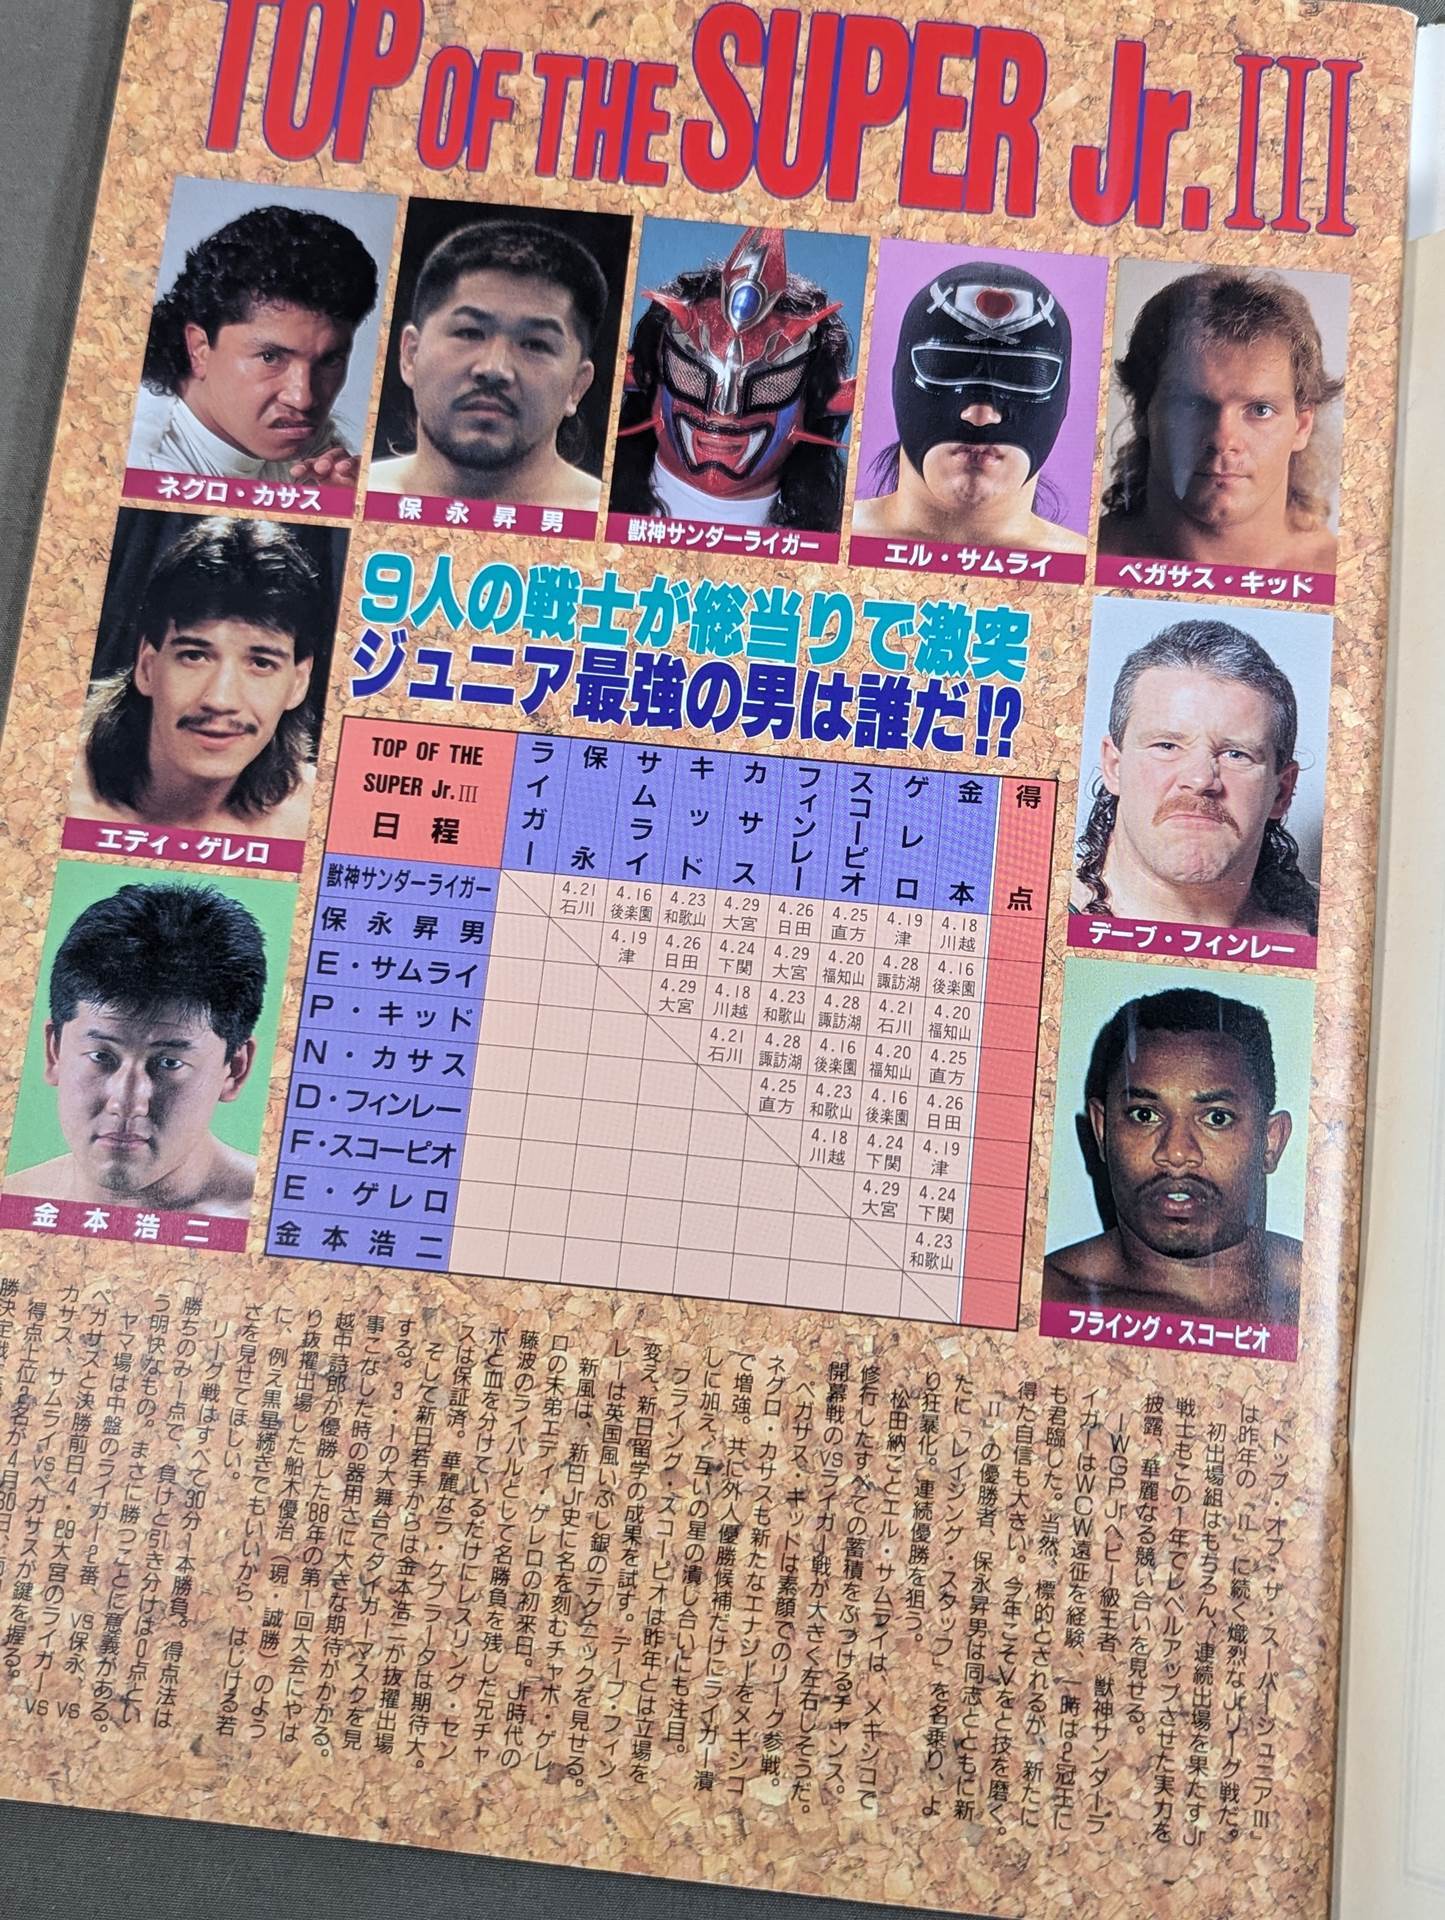 TOP OF THE SUPER Jr.III
ネグロ・カサス
保永昇男
獣神サンダーライガー
エル・サムライ
ペガサス・キッド
エディ・ゲレロ
デーブ・フィンレー
金本浩二
フライング・スコーピオ
9人の戦士が総当りで激突
ジュニア最強の男は誰だ!?
TOP OF THE SUPER Jr.III 日程 ライガー 保永 サムライ キッド カサス フィンレー スコーピオ ゲレロ 金本 得点
獣神サンダーライガー 4.21石川 4.16後楽園 4.23和歌山 4.29大宮 4.26日田 4.25直方 4.19津 4.18川越
保永昇男 4.19津 4.26日田 4.24下関 4.29大宮 4.20福知山 4.28諏訪湖 4.16後楽園
E・サムライ 4.29大宮 4.18川越 4.23和歌山 4.28諏訪湖 4.21石川 4.20福知山
P・キッド 4.21石川 4.28諏訪湖 4.16後楽園 4.20福知山 4.25直方
N・カサス 4.25直方 4.23和歌山 4.16後楽園 4.26日田
D・フィンレー 4.18川越 4.24下関 4.19津
F・スコーピオ 4.29大宮 4.24下関
E・ゲレロ 4.23和歌山
金本浩二
「トップ・オブ・ザ・スーパージュニアIII」
は昨年の「II」に続く熾烈なJrリーグ戦だ。
初出場組はもちろん、連続出場を果たすJr
戦士もこの1年でレベルアップさせた実力を
披露、華麗なる競い合いを見せる。
IWGPJrヘビー級王者、獣神サンダーラ
イガーはWCW遠征を経験、一時は2冠王に
も君臨した。当然、標的とされるが、新たに
得た自信も大きい。今年こそVをと技を磨く。
「II」の優勝者、保永昇男は同志とともに新
たに「レイジング・スタッフ」を名乗り、よ
り狂暴化。連続優勝を狙う。
松田納ことエル・サムライは、メキシコで
修行したすべての蓄積をぶつけるチャンス。
開幕戦のvsライガー戦が大きく左右しそうだ。
ペガサス・キッドは素顔でのリーグ参戦。
ネグロ・カサスも新たなエナジーをメキシコ
で増強。共に外人優勝候補だけにライガー潰
しに加え、互いの星の潰し合いにも注目。
フライング・スコーピオは昨年とは立場を
変え、新日留学の成果を試す。デーブ・フィン
レーは英国風いぶし銀のテクニックを見せる。
新風は、新日Jr史に名を刻むチャボ・ゲレ
ロの末弟エディ・ゲレロの初来日。Jr時代の
藤波のライバルとして名勝負を残した兄チャ
ボと血を分けているだけにレスリング・セン
スは保証済。華麗なラ・ケブラーダは期待大。
そして新日若手からは金本浩二が抜擢出場
する。3・1の大舞台でタイガーマスクを見
事こなした時の器用さに大きな期待がかかる。
越中詩郎が優勝した'88年の第一回大会にやは
り抜擢出場した船木優治(現・誠勝)のよう
に、例え黒星続きでもいいから、はじける若
さを見せてほしい。
リーグ戦はすべて30分1本勝負。得点法は
勝ちのみ1点で、負けと引き分けは0点とい
う明快なもの。まさに勝つことに意義がある。
ヤマ場は中盤のライガー2番、vs保永、vs
ペガサスと決勝前日4・29大宮のライガーvs
カサス、サムライvsペガサスが鍵を握る。
得点上位2名が4月30日、両